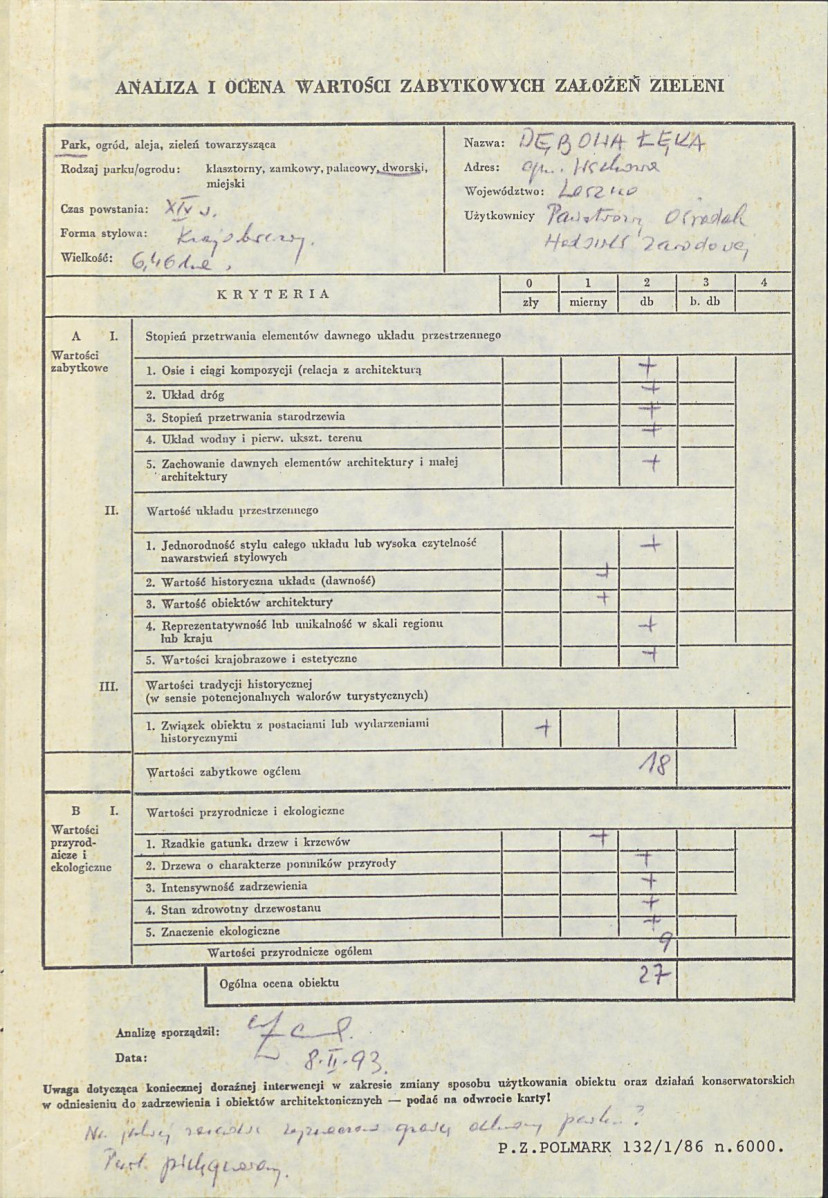 ANALIZA I OCENA WARTOŚCI ZABYTKOWYCH ZAŁOŻEŃ ZIELENI
Park, ogród, aleja, zieleń towarzysząca
Rodzaj parku/ogrodu: klasztorny, zamkowy, pałacowy, dworski,
miejski
Czas powstania: XIV w.
Forma stylowa: Krajobrazowy.
Wielkość: 6,46 ha.
Nazwa: DĘBOWA ŁĘKA
Adres: gm. Wschowa
Województwo: Leszno
Użytkownicy Państwowy Ośrodek
Hodowli Zarodowej
KRYTERIA
0 1 2 3 4
zły mierny db b. db
A I. Stopień przetrwania elementów dawnego układu przestrzennego
Wartości
zabytkowe
1. Osie i ciągi kompozycji (relacja z architekturą +
2. Układ dróg +
3. Stopień przetrwania starodrzewia +
4. Układ wodny i pierw. ukszt. terenu +
5. Zachowanie dawnych elementów architektury i małej +
architektury
II. Wartość układu przestrzennego
1. Jednorodność stylu całego układu lub wysoka czytelność +
nawarstwień stylowych
2. Wartość historyczna układu (dawność) +
3. Wartość obiektów architektury +
4. Reprezentatywność lub unikalność w skali regionu +
lub kraju
5. Wartości krajobrazowe i estetyczne +
III. Wartości tradycji historycznej
(w sensie potencjonalnych walorów turystycznych)
1. Związek obiektu z postaciami lub wydarzeniami +
historycznymi
Wartości zabytkowe ogółem 18
B I. Wartości przyrodnicze i ekologiczne
Wartości
przyrod-
nicze i
ekologiczne
1. Rzadkie gatunki drzew i krzewów +
2. Drzewa o charakterze pomników przyrody +
3. Intensywność zadrzewienia +
4. Stan zdrowotny drzewostanu +
5. Znaczenie ekologiczne +
Wartości przyrodnicze ogółem 9
Ogólna ocena obiektu 27
Analizę sporządził:
Data: 8.II.93.
Uwaga dotycząca koniecznej doraźnej interwencji w zakresie zmiany sposobu użytkowania obiektu oraz działań konserwatorskich
w odniesieniu do zadrzewienia i obiektów architektonicznych — podać na odwrocie karty!
Na jakiej zasadzie parku?
P.Z.POLMARK 132/1/86 n.6000.
Park pielęgnowany.